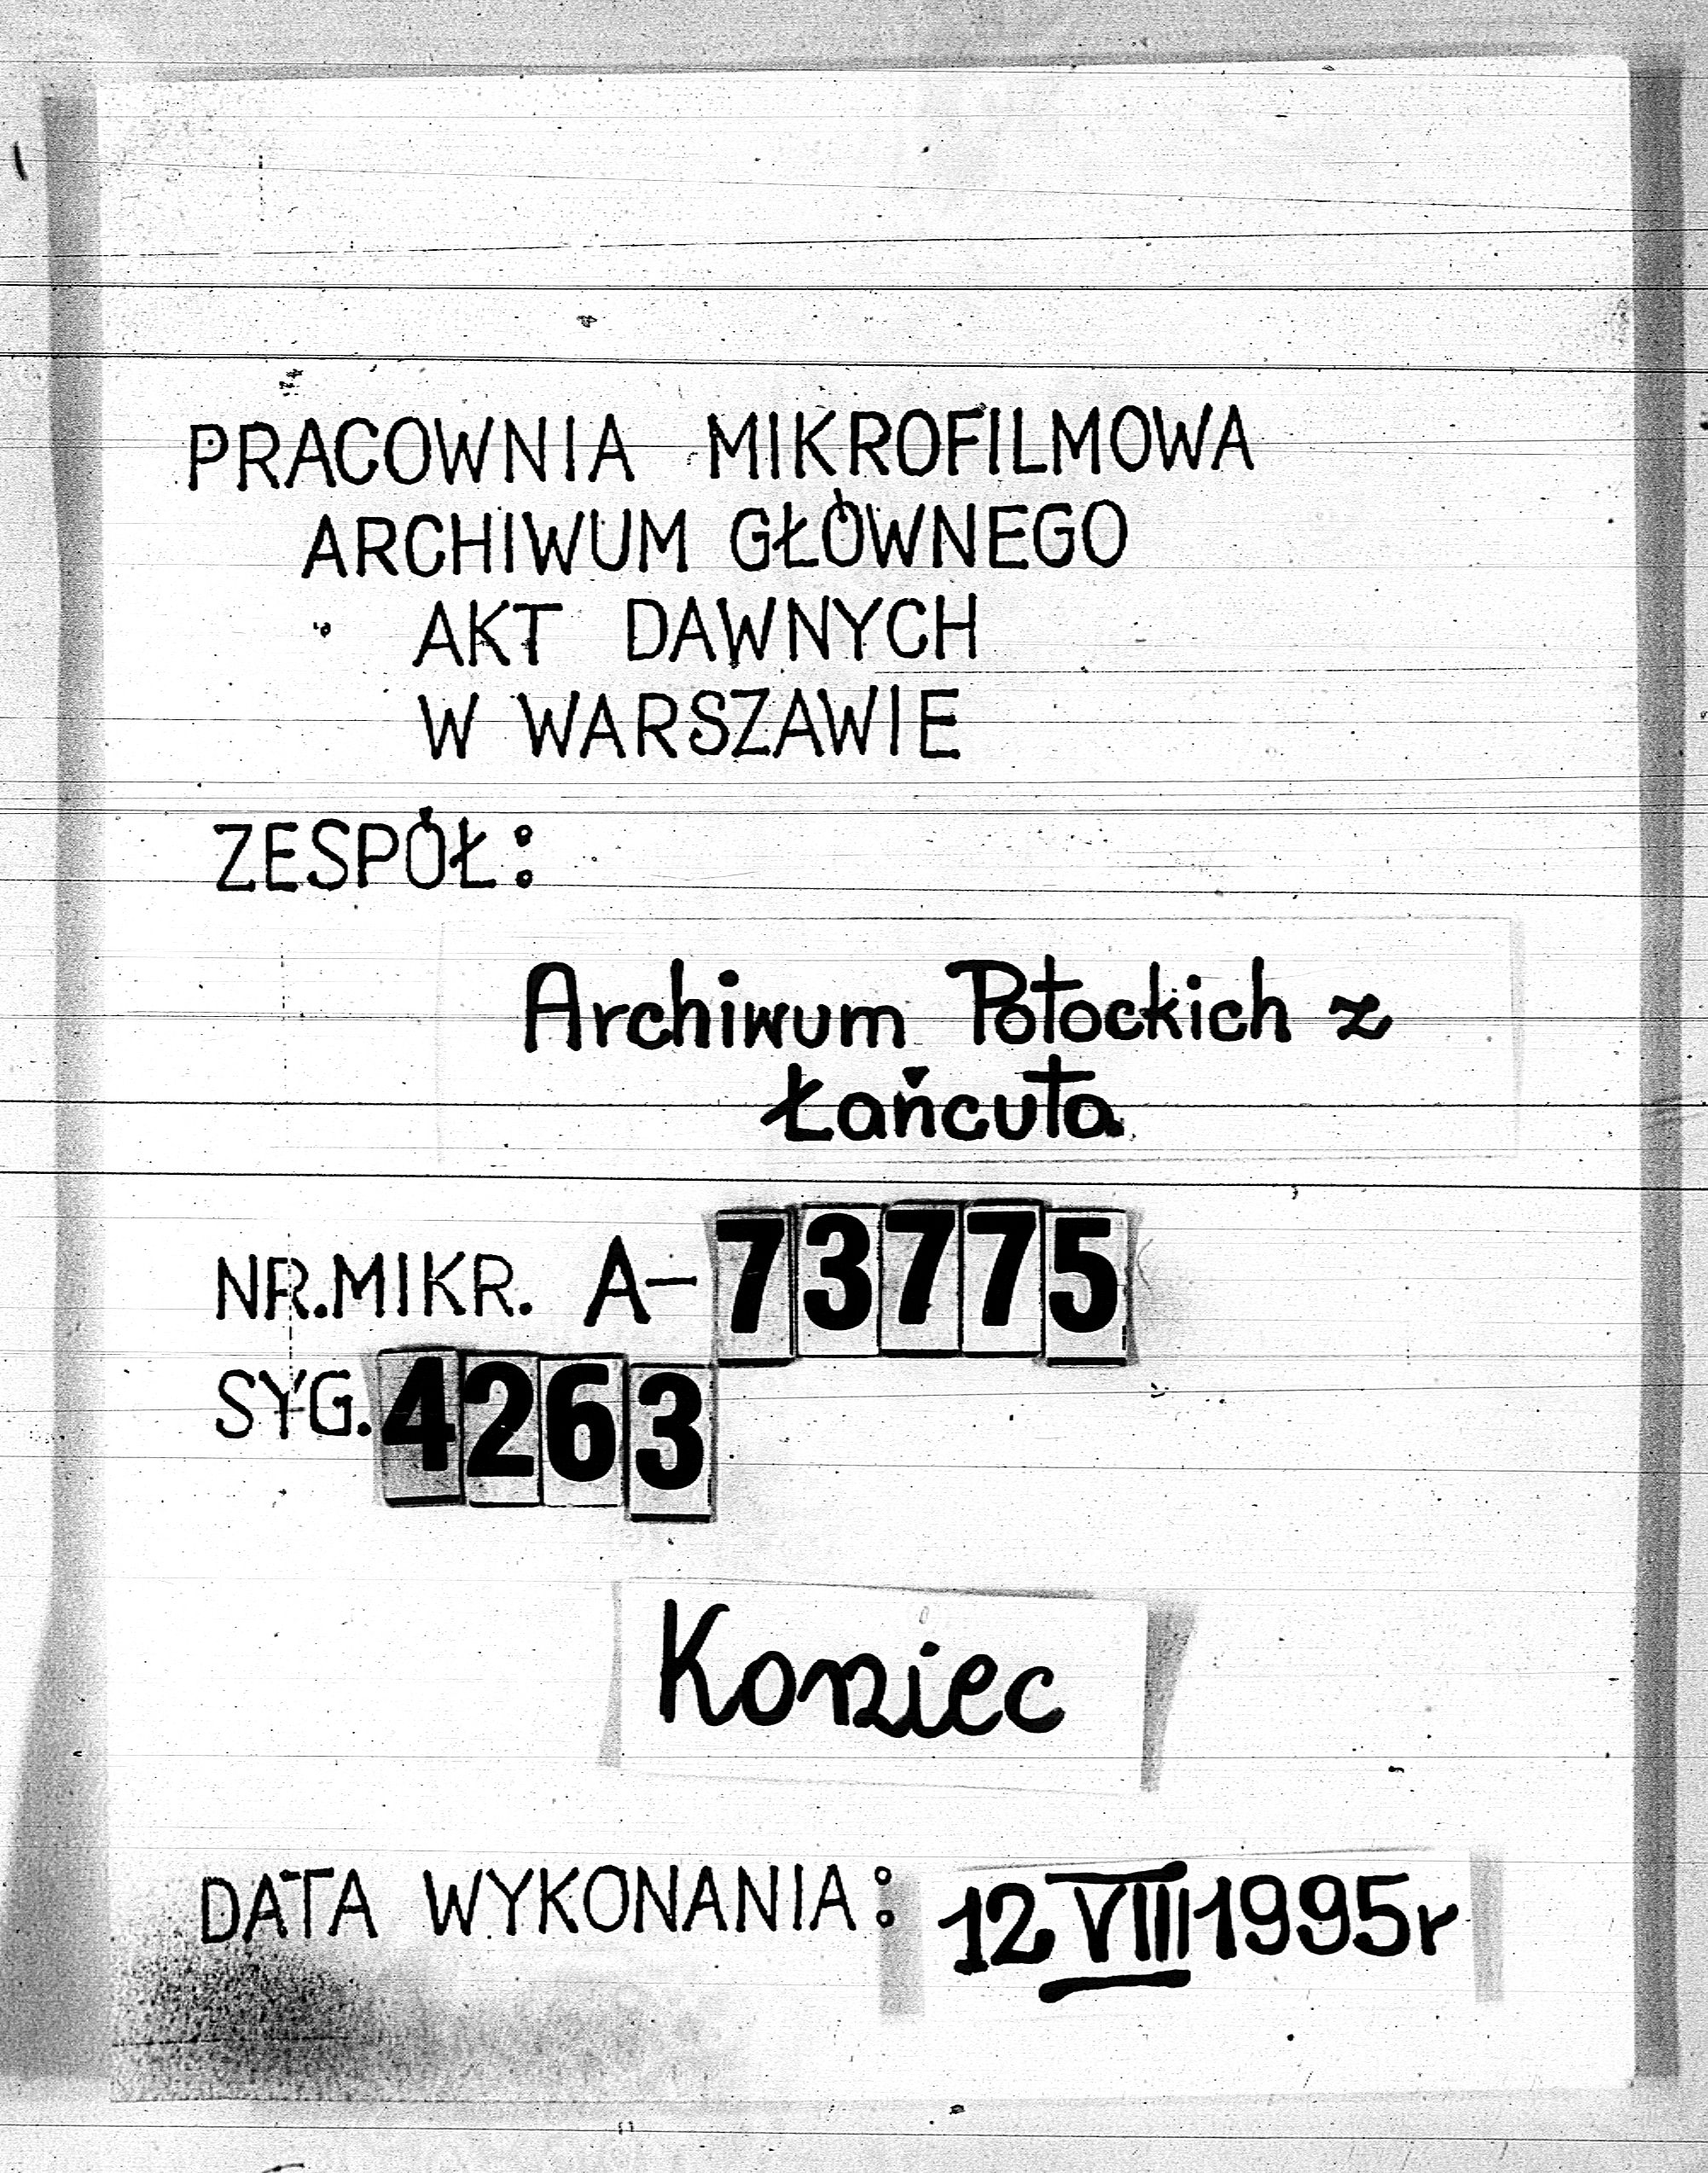 PRACOWNIA MIKROFILMOWA
ARCHIWUM GŁÓWNEGO
AKT DAWNYCH
W WARSZAWIE
ZESPÓŁ:
Archiwum Potockich z
Łańcuta
NR.MIKR. A-73775
SYG.4263
Koniec
DATA WYKONANIA: 12 VIII 1995r